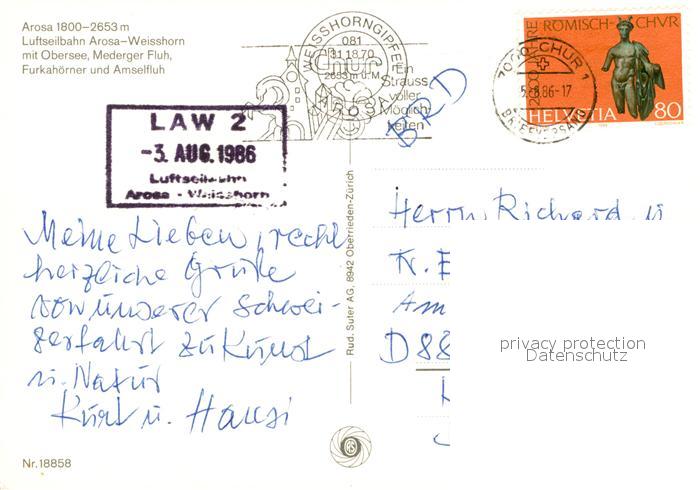 Arosa 1800–2653 m
Luftseilbahn Arosa–Weisshorn
mit Obersee, Mederger Fluh,
Furkahörner und Amselfluh
WEISSHORNGIPFEL
081
31 18 70
Chur
2653 m ü. M.
AROSA
Ein
Strauss
voller
Möglich-
keiten
BRD
2000 JAHRE RÖMISCH-CHUR
HELVETIA 80
7000 CHUR 1
5.8.86-17
BRIEFVERSAND
LAW 2
-3. AUG. 1986
Luftseilbahn
Arosa - Weisshorn
Meine Lieben, recht
herzliche Grüße
von unserer Schwei-
zerfahrt zu Kunst
u. Natur
Kurt u. Hansi
Rud. Suter AG, 8942 Oberrieden-Zürich
Herrn Richard u
K. E
Am
D 88
privacy protection
Datenschutz
Nr. 18858